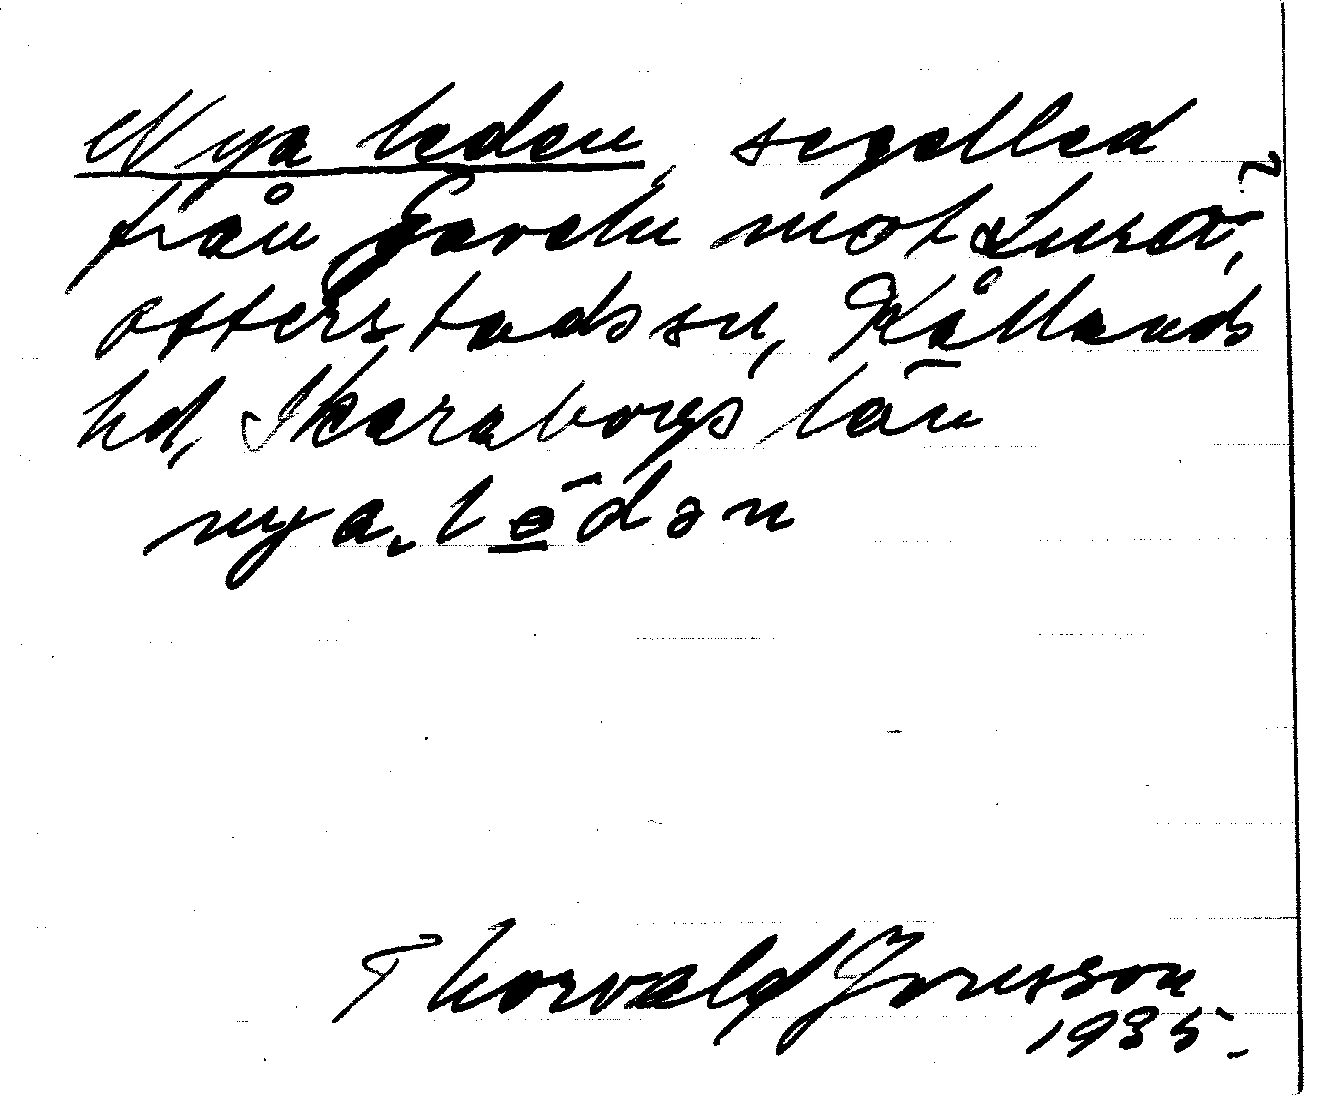 Nya leden, segelled
från Gaveln mot Lurö?,
Otterstads sn, Kållands
hd, Skaraborgs län
nya. lēdən
Thorvald Jonsson
1935.